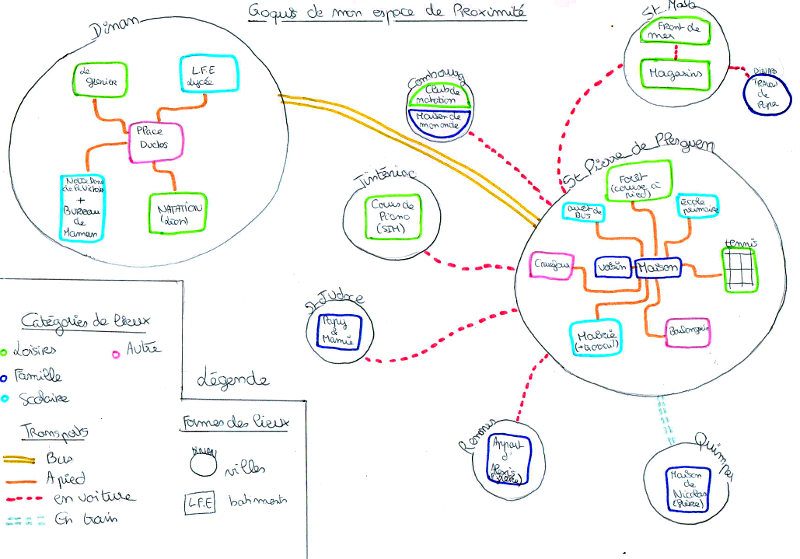 Croquis de mon espace de Proximité
Dinan
Le
Grenier
L.F.E
Lycée
Place
Duclos
Notre Dame
+
Bureau
de
Maman
NATATION
Combourg
Club de
natation
Maison de
St Malo
Front de
mer
Magasins
Dinard
de
Papa
Tinténiac
Cours de
Piano
(SIM)
St Pierre de Plerguen
Forêt
(course à
pied)
arrêt de
Bus
Ecole
primaire
tennis
Voisin
Maison
Mairie
Boulangerie
St Judoce
Papy
&
Mamie
Rennes
Appart
d'
Quimper
Maison
de
Nicolas
(frère)
Légende
Catégories de lieux
Loisirs
Autre
Famille
Scolaire
Transports
Bus
A pied
en voiture
En train
Formes des lieux
villes
L.F.E
batiments